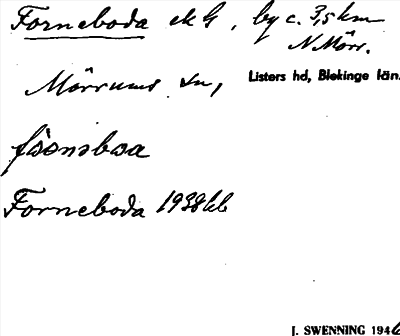 Forneboda ek G, by c. 3,5 km
N Mörr.
Mörrums sn,
Listers hd, Blekinge län.
Forneboda 1938 kb
J. SWENNING 1946